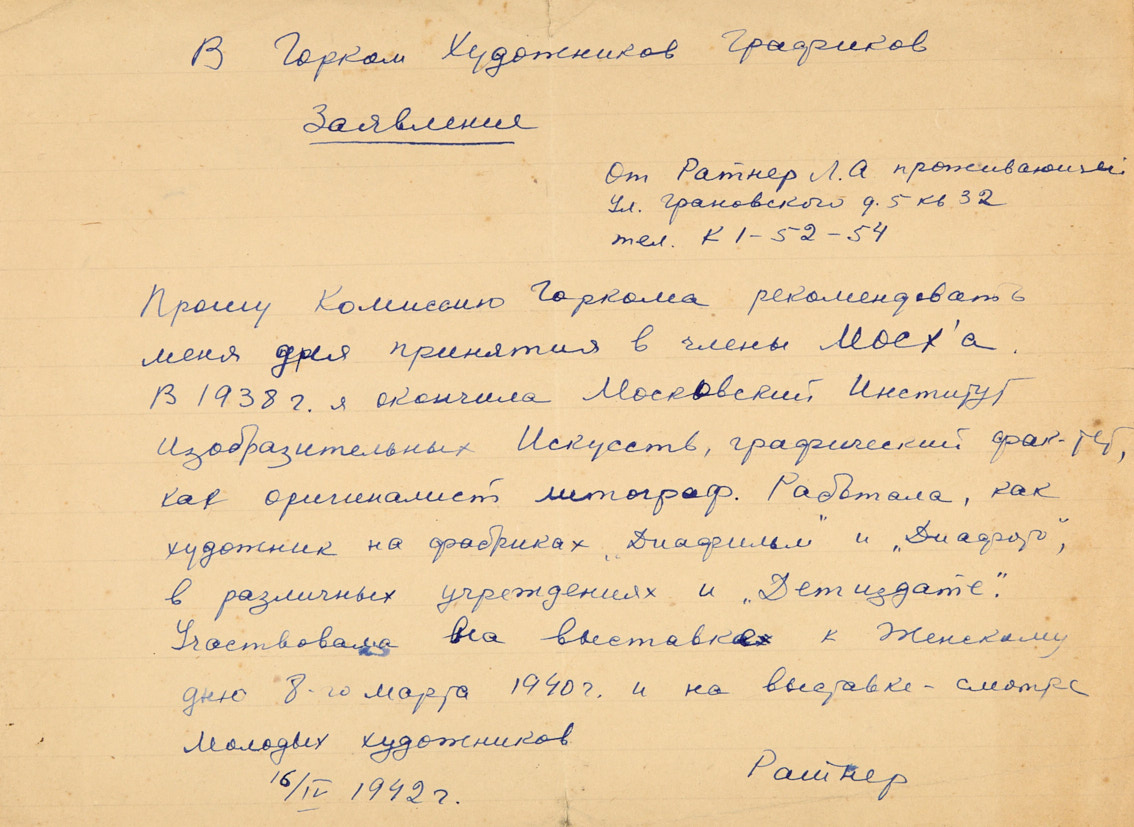 В Горком Художников Графиков
Заявление
От Ратнер Л.А проживающей
Ул. Грановского д. 5 кв 32
тел. К 1-52-54
Прошу Комиссию Горкома рекомендовать
меня для принятия в члены МОСХ'а.
В 1938 г. я окончила Московский Институт
Изобразительных Искусств, графический фак-тет,
как оригиналист литограф. Работала, как
художник на фабриках „Диафильм" и „Диафото",
в различных учреждениях и „Детиздате".
Участвовала на выставках к Женскому
дню 8-го марта 1940 г. и на выставке-смотре
молодых художников
16/IV 1942 г.
Ратнер